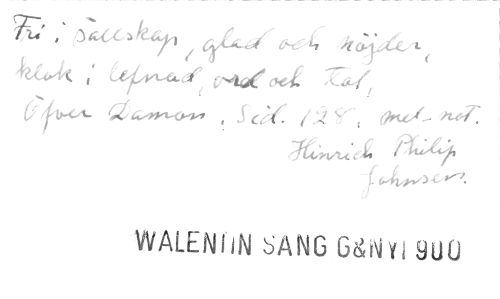 Fri i sällskap, glad och nöjder,
klok i lefnad, ord och tal,
Öfver Damon. Sid. 128. med not.
Hinrich Philip
Johnsen.
WALENTIN SANG G&NYT 900